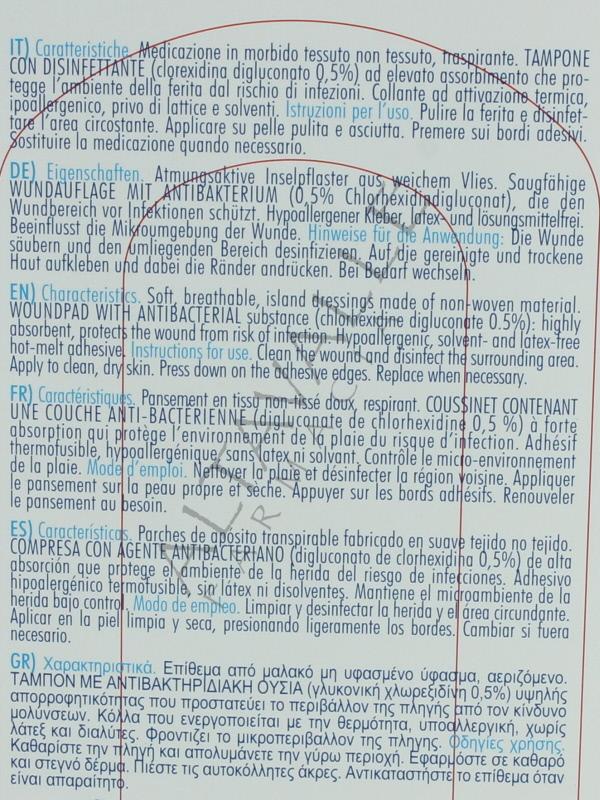 IT) Caratteristiche. Medicazione in morbido tessuto non tessuto, traspirante. TAMPONE
CON DISINFETTANTE (clorexidina digluconato 0,5%) ad elevato assorbimento che pro-
tegge l'ambiente della ferita dal rischio di infezioni. Collante ad attivazione termica,
ipoallergenico, privo di lattice e solventi. Istruzioni per l'uso. Pulire la ferita e disinfet-
tare l'area circostante. Applicare su pelle pulita e asciutta. Premere sui bordi adesivi.
Sostituire la medicazione quando necessario.
DE) Eigenschaften. Atmungsaktive Inselpflaster aus weichem Vlies. Saugfähige
WUNDAUFLAGE MIT ANTIBAKTERIUM (0,5% Chlorhexidindigluconat), die den
Wundbereich vor Infektionen schützt. Hypoallergener Kleber, latex- und lösungsmittelfrei.
Beeinflusst die Mikroumgebung der Wunde. Hinweise für die Anwendung: Die Wunde
säubern und den umliegenden Bereich desinfizieren. Auf die gereinigte und trockene
Haut aufkleben und dabei die Ränder andrücken. Bei Bedarf wechseln.
EN) Characteristics. Soft, breathable, island dressings made of non-woven material.
WOUNDPAD WITH ANTIBACTERIAL substance (chlorhexidine digluconate 0.5%): highly
absorbent, protects the wound from risk of infection. Hypoallergenic, solvent- and latex-free
hot-melt adhesive. Instructions for use. Clean the wound and disinfect the surrounding area.
Apply to clean, dry skin. Press down on the adhesive edges. Replace when necessary.
FR) Caractéristiques. Pansement en tissu non tissé doux, respirant. COUSSINET CONTENANT
UNE COUCHE ANTI-BACTÉRIENNE (digluconate de chlorhexidine 0,5 %) à forte
absorption qui protège l'environnement de la plaie du risque d'infection. Adhésif
thermofusible, hypoallergénique, sans latex ni solvant. Contrôle le micro-environnement
de la plaie. Mode d'emploi. Nettoyer la plaie et désinfecter la région voisine. Appliquer
le pansement sur la peau propre et sèche. Appuyer sur les bords adhésifs. Renouveler
le pansement au besoin.
ES) Características. Parches de apósito transpirable fabricado en suave tejido no tejido.
COMPRESA CON AGENTE ANTIBACTERIANO (digluconato de clorhexidina 0,5%) de alta
absorción que protege el ambiente de la herida del riesgo de infecciones. Adhesivo
hipoalergénico termofusible, sin látex ni disolventes. Mantiene el microambiente de la
herida bajo control. Modo de empleo. Limpiar y desinfectar la herida y el área circundante.
Aplicar en la piel limpia y seca, presionando ligeramente los bordes. Cambiar si fuera
necesario.
GR) Χαρακτηριστικά. Επίθεμα από μαλακό μη υφασμένο ύφασμα, αεριζόμενο.
ΤΑΜΠΟΝ ΜΕ ΑΝΤΙΒΑΚΤΗΡΙΔΙΑΚΗ ΟΥΣΙΑ (γλυκονική χλωρεξιδίνη 0,5%) υψηλής
απορροφητικότητας που προστατεύει το περιβάλλον της πληγής από τον κίνδυνο
μολύνσεων. Κόλλα που ενεργοποιείται με την θερμότητα, υποαλλεργική, χωρίς
λάτεξ και διαλύτες. Φροντίζει το μικροπεριβαλλον της πληγης. Οδηγίες χρήσης.
Καθαρίστε την πληγή και απολυμάνετε την γύρω περιοχή. Εφαρμόστε σε καθαρό
και στεγνό δέρμα. Πιέστε τις αυτοκόλλητες άκρες. Αντικαταστήστε το επίθεμα όταν
είναι απαραίτητο.
ALTAVALLE
FARMACIE